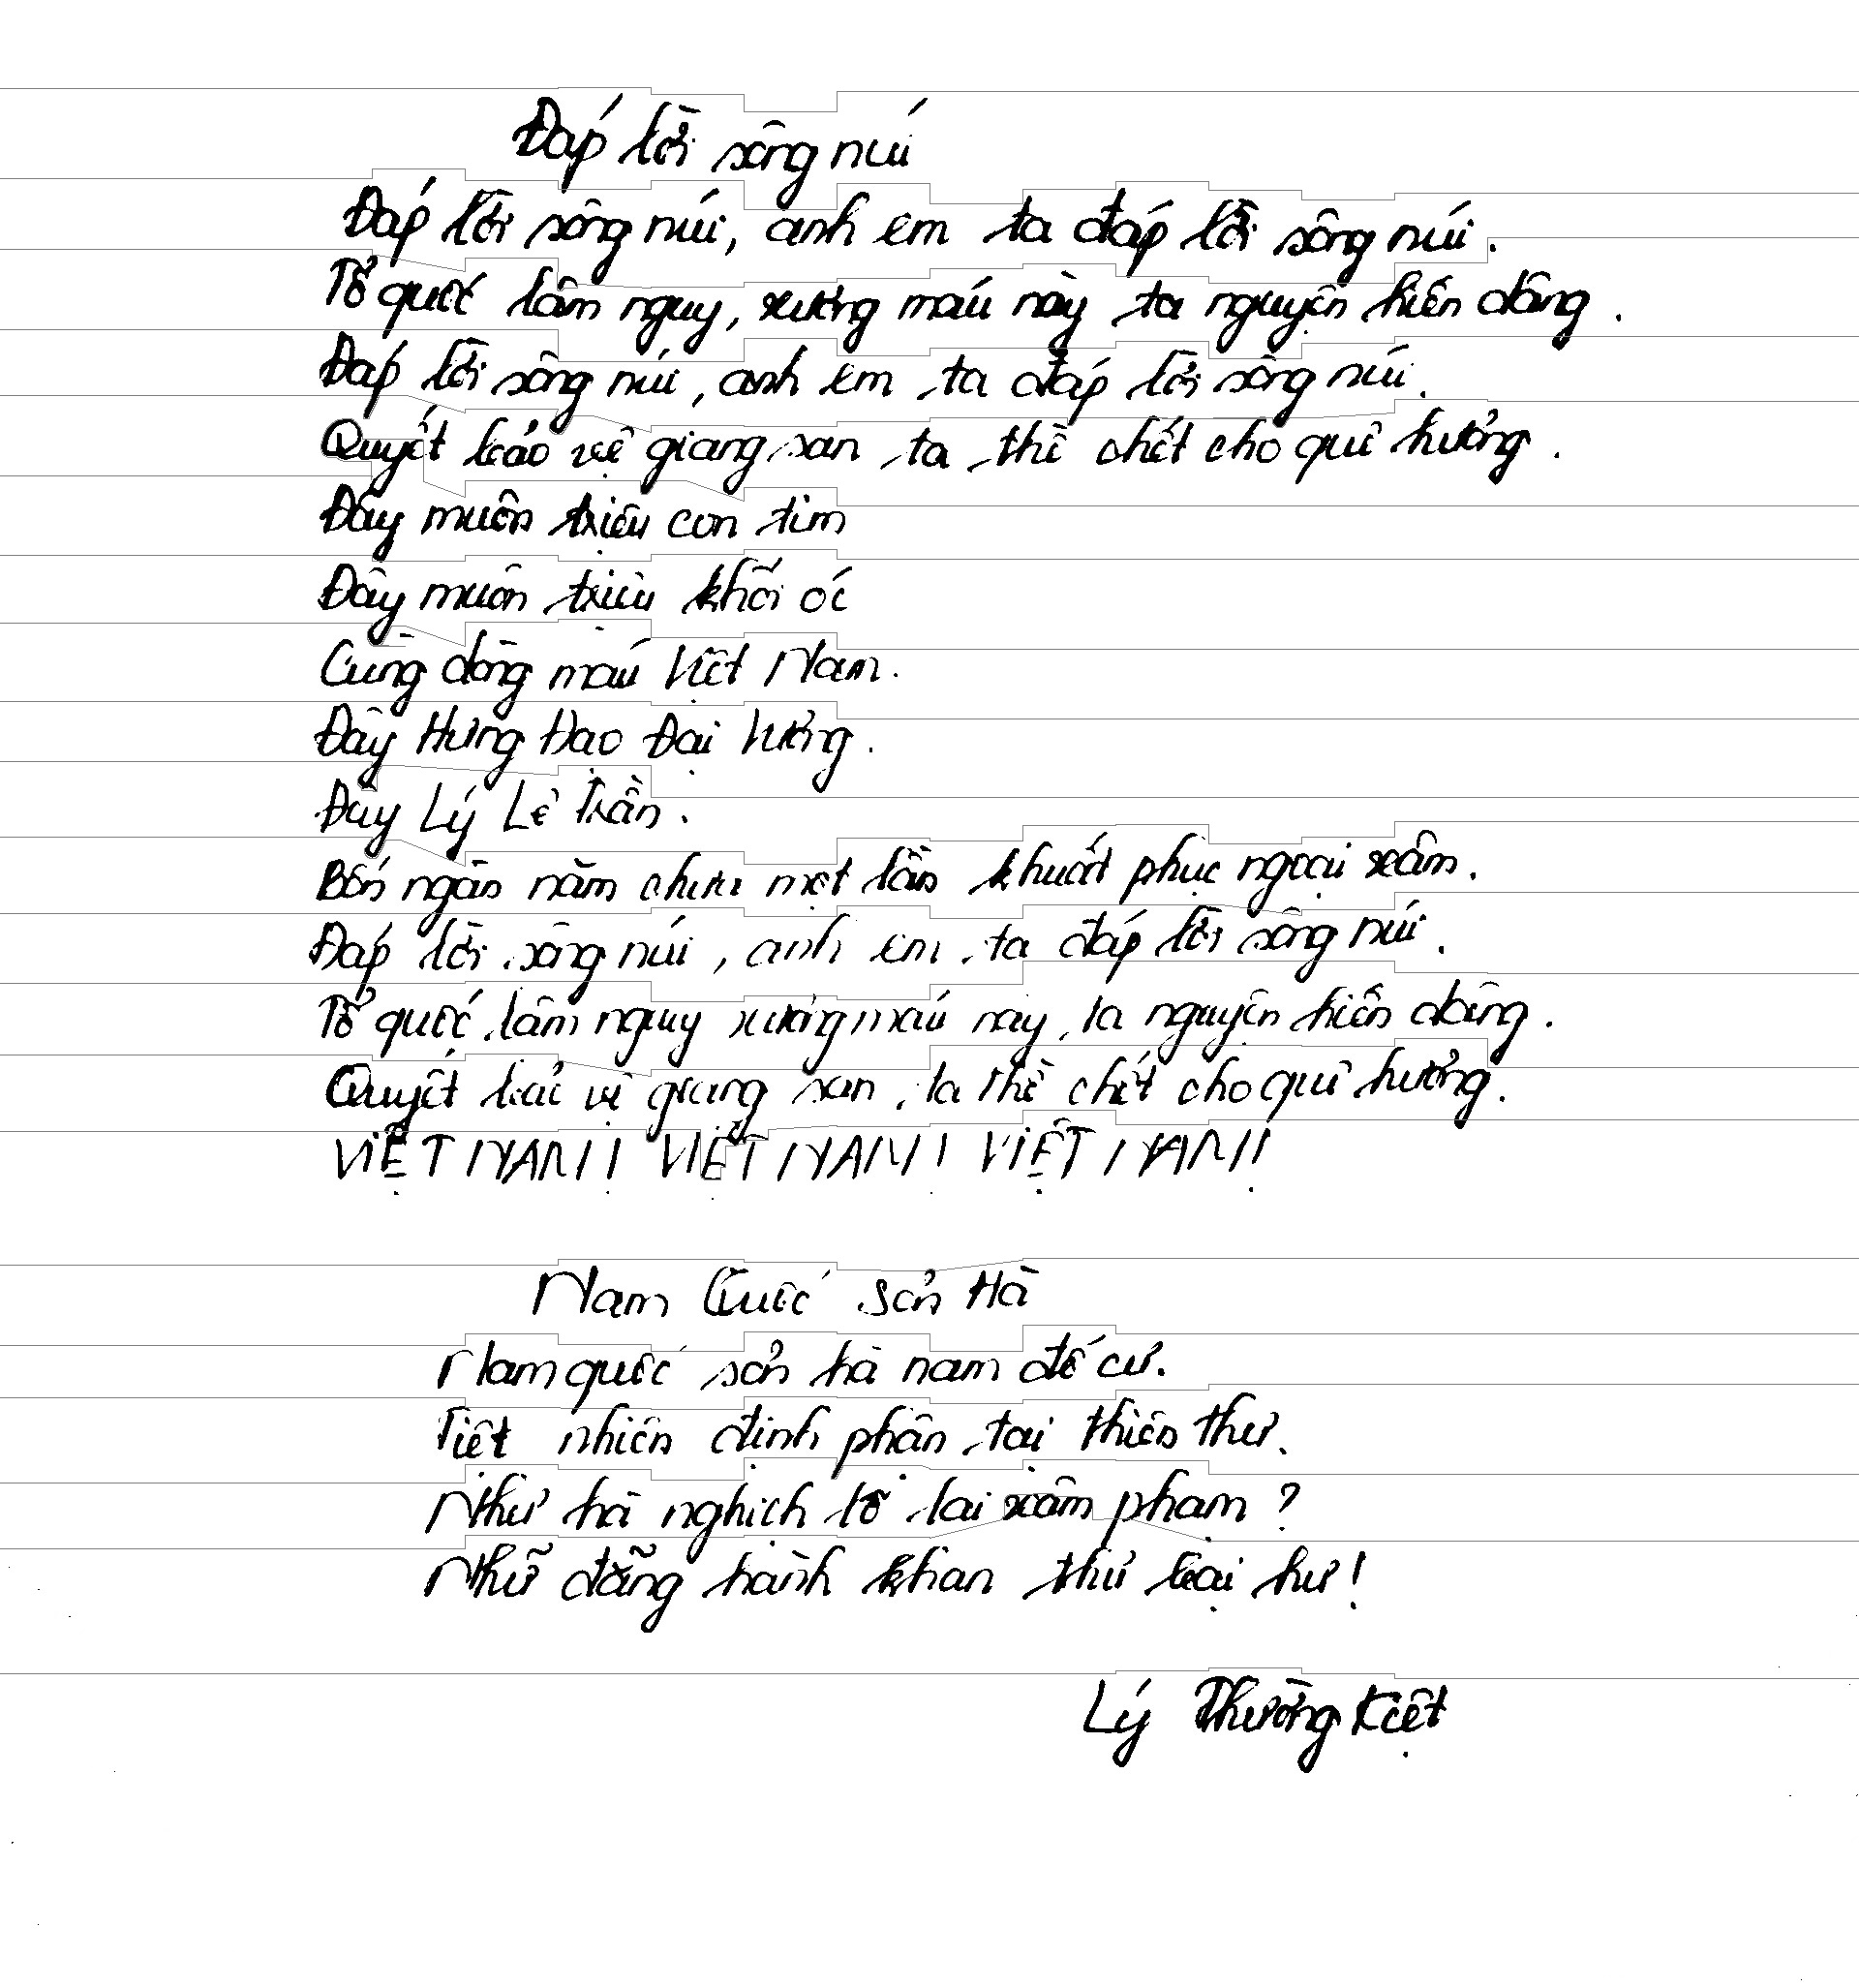 Đáp lời sông núi
Đáp lời sông núi, anh em ta đáp lời sông núi.
Tổ quốc lâm nguy, xương máu này ta nguyện hiến dâng.
Đáp lời sông núi, anh em ta đáp lời sông núi.
Quyết bảo vệ giang san ta thề chết cho quê hương.
Đây muôn triệu con tim
Đây muôn triệu khối óc
Cùng dòng máu Việt Nam.
Đây Hưng Đạo Đại Vương.
Đây Lý Lê Trần.
Bốn ngàn năm chưa một lần khuất phục ngoại xâm.
Đáp lời sông núi, anh em ta đáp lời sông núi.
Tổ quốc lâm nguy xương máu này ta nguyện hiến dâng.
Quyết bảo vệ giang san ta thề chết cho quê hương.
VIỆT NAM! VIỆT NAM! VIỆT NAM!
Nam Quốc Sơn Hà
Nam quốc sơn hà nam đế cư.
Tiệt nhiên định phận tại thiên thư.
Như hà nghịch lỗ lai xâm phạm?
Nhữ đẳng hành khan thủ bại hư!
Lý Thường Kiệt